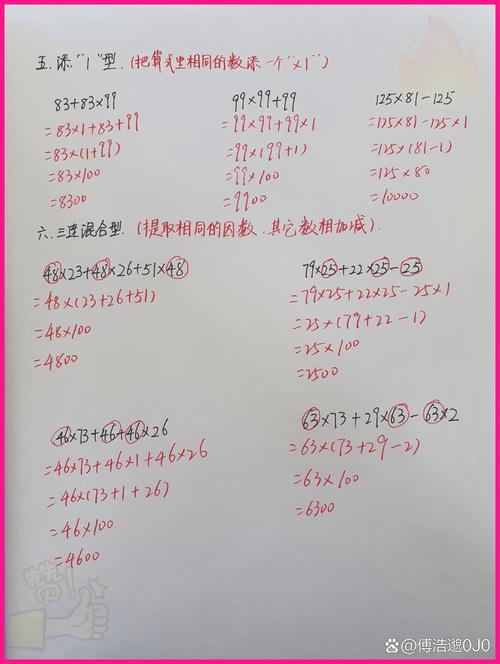 五.添"1"型.(把算式里相同的数添一个"×1")
83+83×99
=83×1+83+99
=83×(1+99)
=83×100
=8300
99×99+99
=99×99+99×1
=99×(99+1)
=99×100
=9900
125×81-125
=125×81-125×1
=125×(81-1)
=125×80
=10000
六.三连混合型.(提取相同的因数,其它数相加减).
48×23+48×26+51×48
=48×(23+26+51)
=48×100
=4800
79×25+22×25-25
=79×25+22×25-25×1
=25×(79+22-1)
=25×100
=2500
46×73+46+46×26
=46×73+46×1+46×26
=46×(73+1+26)
=46×100
=4600
63×73+29×63-63×2
=63×(73+29-2)
=63×100
=6300
赞!
@傅浩邈0J0